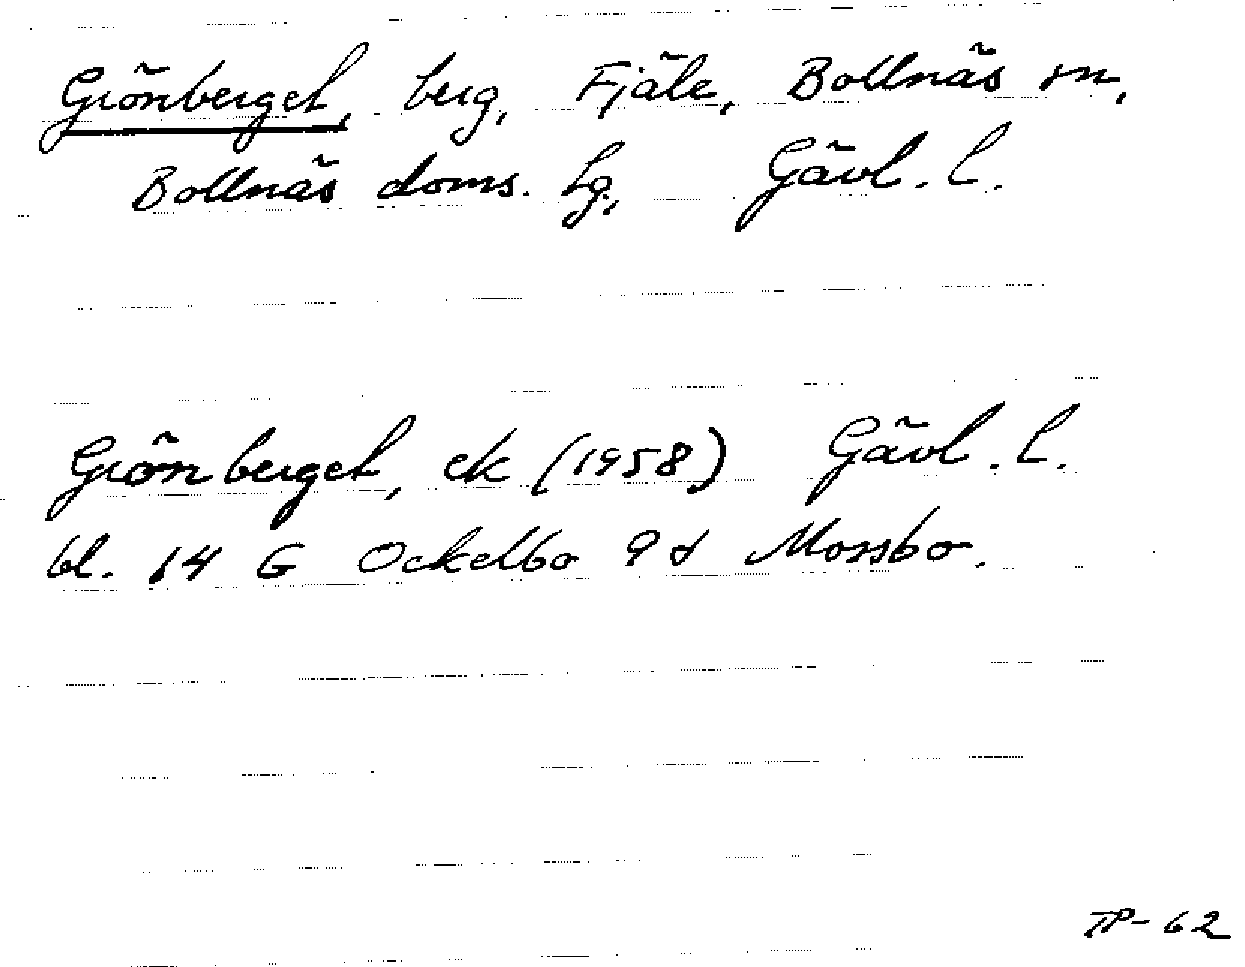 Grönberget, berg, Fjäle, Bollnäs sn,
Bollnäs doms. hg, Gävl. l.
Grönberget, ek (1958) Gävl. l.
bl. 14 G Ockelbo 9 d Mossbo.
TP-62